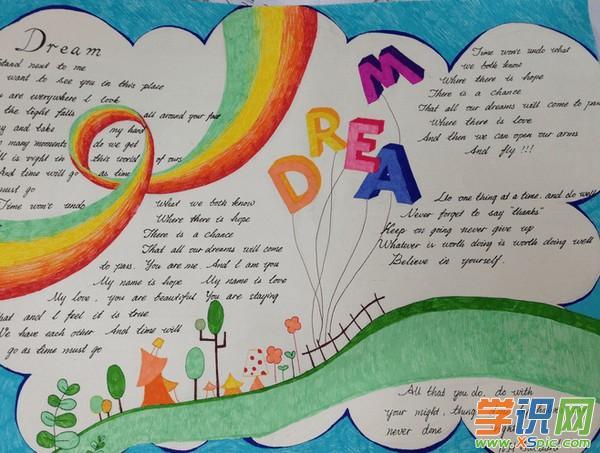 Dream
Stand next to me
want to see you in this place
are everywhere I look
the light falls all around your feet
and take my hand
many moments do we get
all is right in this world of ours
And time will go as time
must go
Time won't undo what we both know
Where there is hope
There is a chance
That all our dreams will come
to pass. You are me. And I am you
My name is hope My name is love
My love, you are beautiful You are staying
that and I feel it is true
We have each other And time will
go as time must go
DREAM
Time won't undo what
we both know
Where there is hope
There is a chance
That all our dreams will come to pass
Where there is love
And then we can open our arms
And fly !!!
Do one thing at a time, and do well
Never forget to say "thanks"
Keep on going never give up
Whatever is worth doing is worth doing well
Believe in yourself.
All that you do, do with
your might, things
never done right
学识网
www.xSpic.com